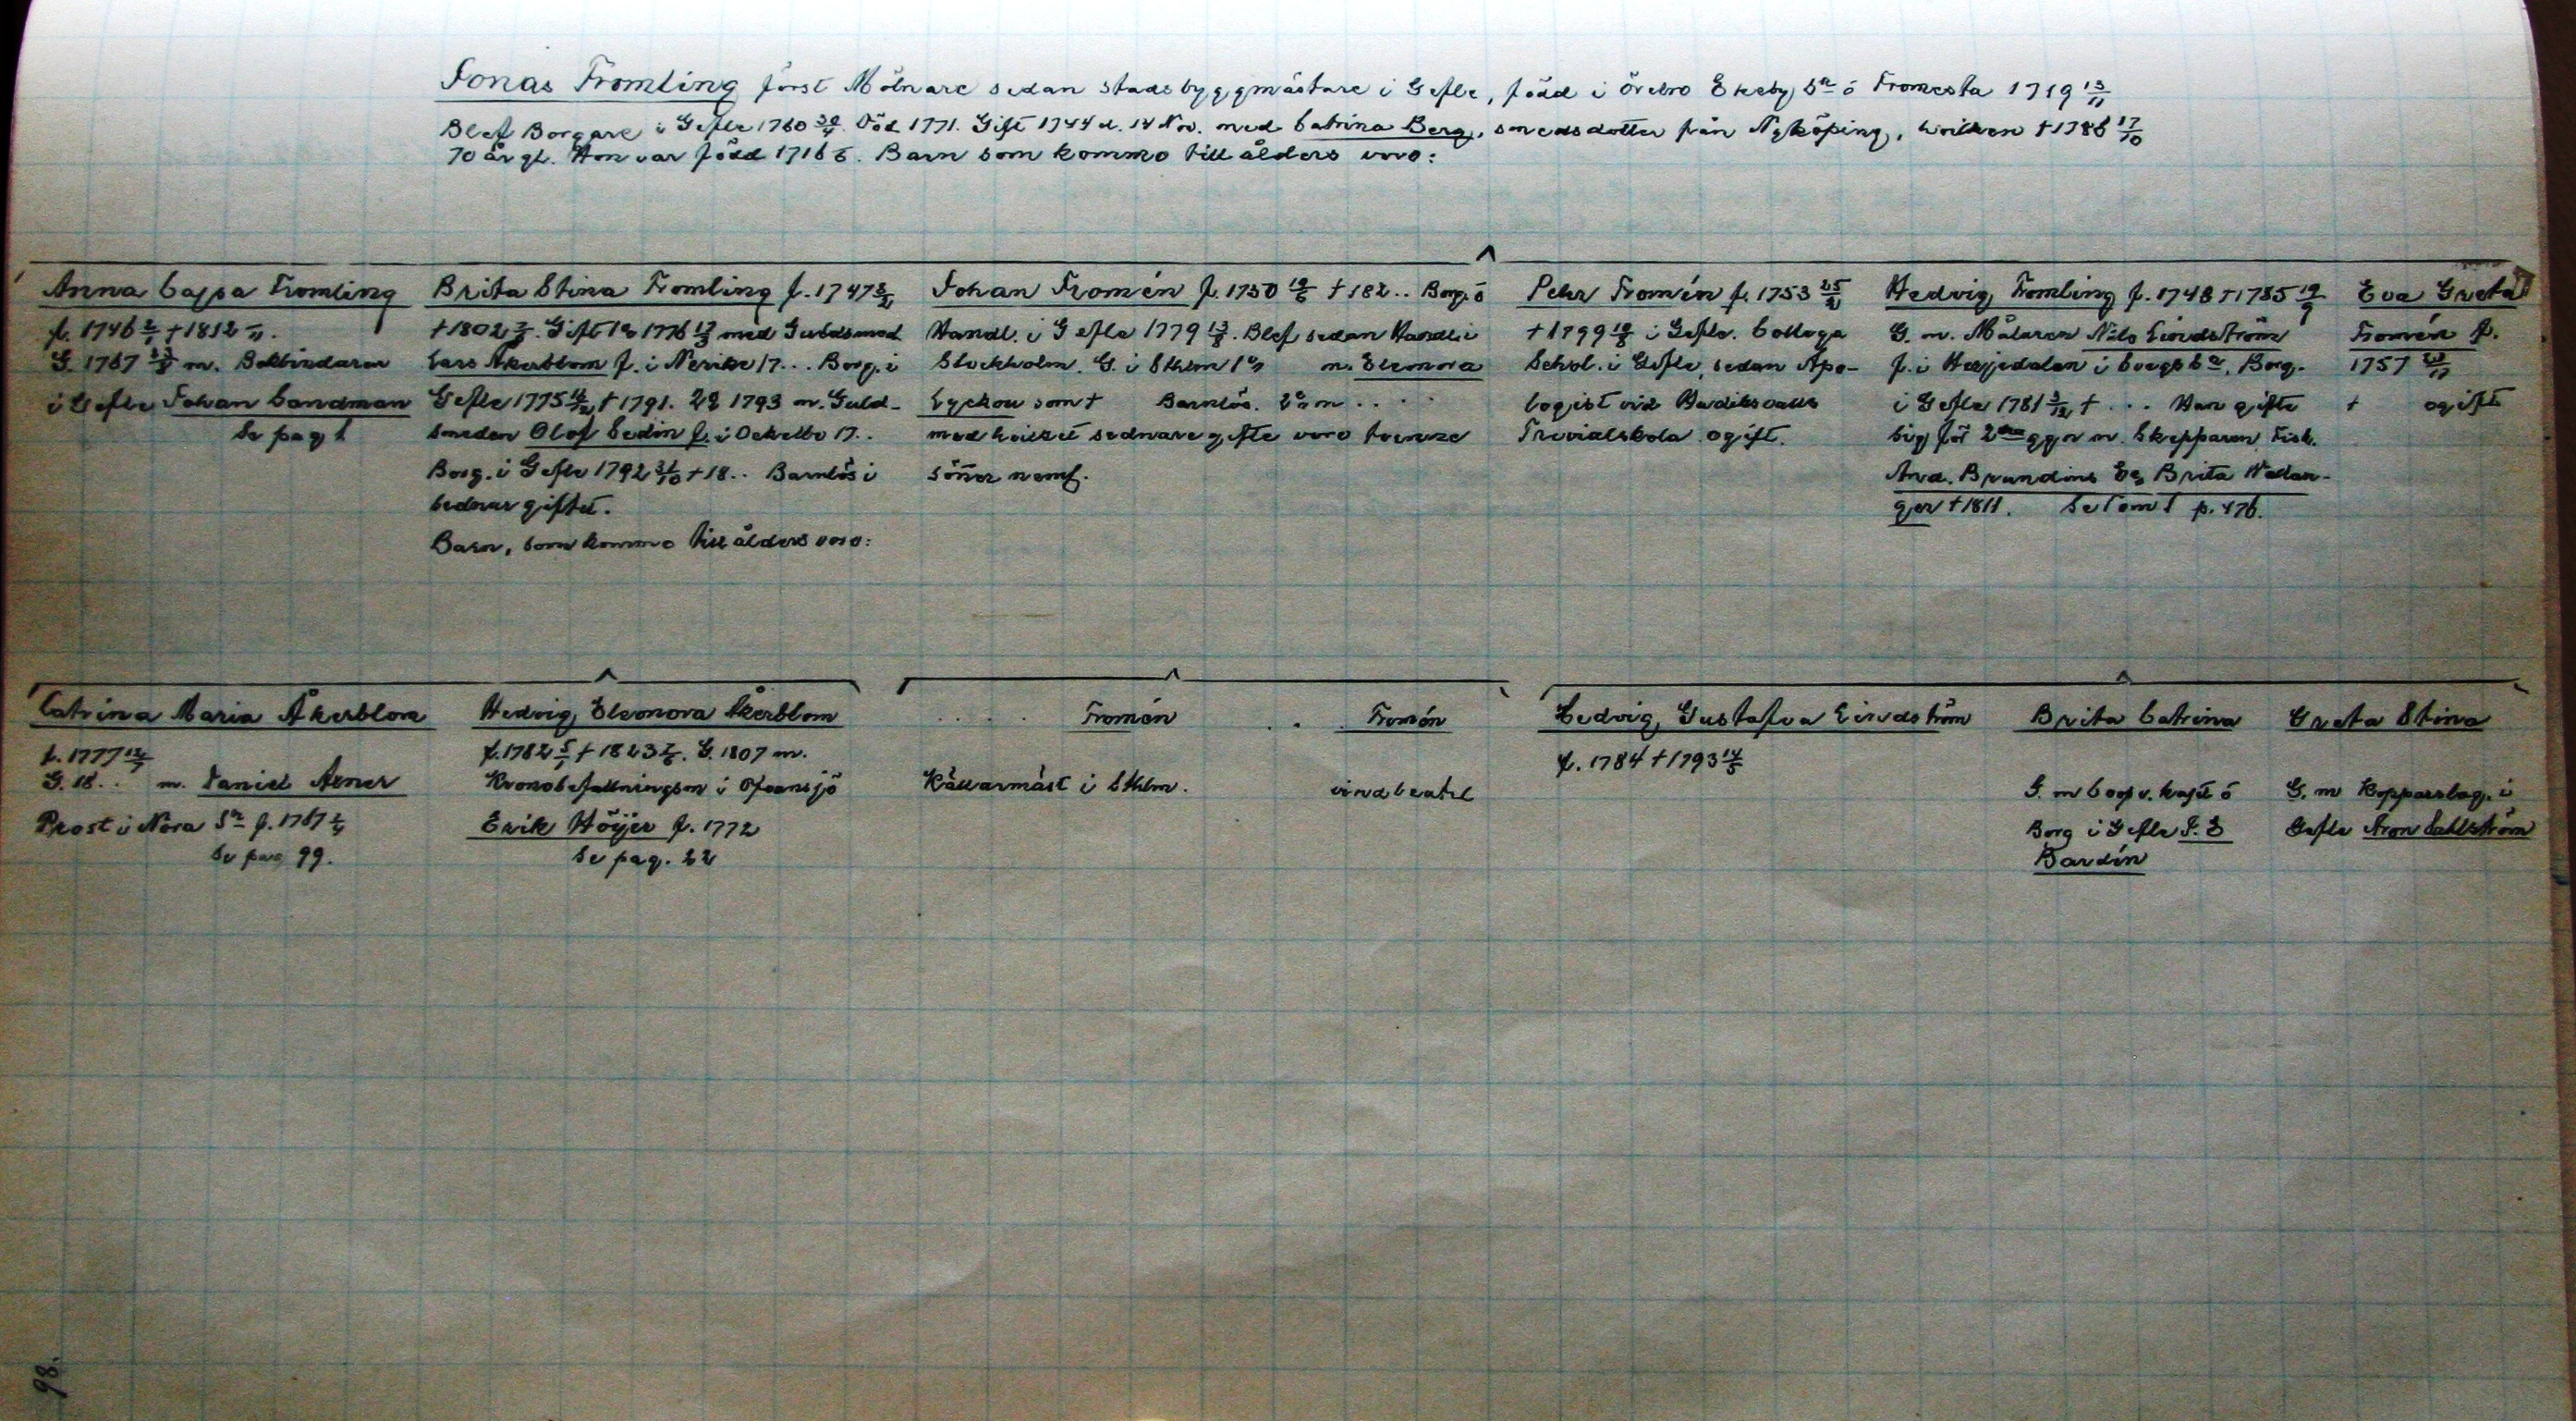 Jonas Fromling först Mölnare sedan stadsbyggmästare i Gefle, född i Örebro Ekeby Sn ö Fromesta 1719 13/11
Blef Borgare i Gefle 1760 30/4. Död 1771. Gift 1744 d. 14 Nov. med Catrina Berg, smedsdotter från Nyköping, hvilken †1786 17/10
70 år gl. Hon var född 1716. Barn som kommo till ålders voro:
Anna Cajsa Fromling
f. 1746 †1812
G. 1767 m. Bokbindaren
i Gefle Johan Sandman
Se pag 1
Brita Stina Fromling f. 1747
†1802. Gift 1o 1776 med Guldsmed
Lars Åkerblom f. i Nerike 17... Borg. i
Gefle 1775 † 1791. 2o 1793 m. Guld-
smeden Olof Sedin f. i Ockelbo 17..
Borg. i Gefle 1792 31/10 †18.. Barnlös i
sednare giftet.
Barn, som kommo till ålders voro:
Johan Fromén f. 1750 †182.. Borg. ö
Handl. i Gefle 1779. Blef sedan Handl. i
Stockholm. G. i Sthlm 1o m. Eleonora
Lyckou som † Barnlös. 2o m ....
med hvilket sednare gifte voro tvenne
Söner nemf.
Pehr Fromén f. 1753 25/2
†1799 i Gefle. Collega
Schol. i Gefle, sedan Apo-
logist vid Hudiksvalls
Trivialskola ogift.
Hedvig Fromling f. 1748 †1785 19/9
G. m. Målaren Nils Lindström
f. i Herjedalen i Sn, Borg.
i Gefle 1781 3/12 † ... Han gifte
sig för 2dra ggn m. Skepparen Fisk.
And. Brundins Ea Brita Wallan-
ger †1811. Se Tom 1 p. 476.
Eva Greta
Fromén f.
1757
† ogift
Catrina Maria Åkerblom
f. 1777
G. 18.. m. Daniel Arner
Prost i Nora Sn f. 1767
Se pag 99.
Hedvig Eleonora Åkerblom
f. 1782 5/1 † 1823. G. 1807 m.
Kronobefallningsm i Ofvansjö
Erik Höijer f. 1772
Se pag. 22
.... Fromén
Källarmäst i Sthlm.
.. Fromén
Hedvig Gustafva Lindström
f. 1784 †1793 14/5
Brita Catrina
G. m Coopv. kapt ö
Borg i Gefle J. E
Bardin
Greta Stina
G. m Kopparslag. i
Gefle Aron Dahlström
98.